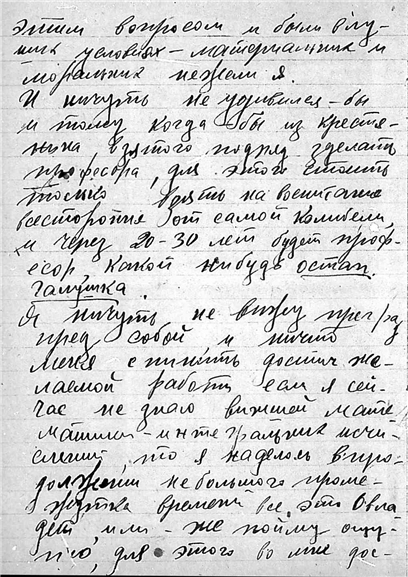 этим вопросом и были в лу-
чших условиях – материальных и
моральных нежели я.
И ничуть не удивился-бы
и тому когда-бы из крестя-
нина взятого подряд сделать
професора, для этого стоить
только взять на воспитание
всесторонне от самой колибели,
и через 20-30 лет будет проф-
есор, какой нибудь остап
галушка.
Я ничуть не вижу преград
пред собой, и ничто
меня с пинить достич же-
лаемой работы если я сей-
час не знаю вижшей мате
матики – интегральних исчи-
слений, то я наделось в про-
должении небольшого проме-
жутка времени все это овла
деть, или-же пойму
для этого во мне дос-